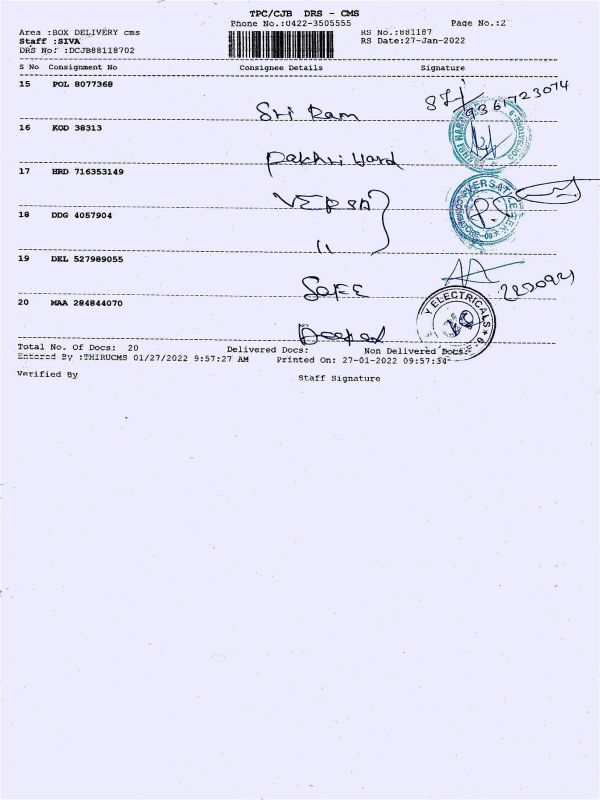 TPC/CJB DRS - CMS
Phone No.:0422-3505555 Page No.:2
Area :BOX DELIVERY cms RS No.:881187
Staff :SIVA RS Date:27-Jan-2022
DRS No: :DCJB88118702
S No Consignment No Consignee Details Signature
15 POL 8077368
Sri Ram 9361723074
16 KOD 38313
17 HRD 716353149
18 DDG 4057904
"
19 DEL 527989055
Safe
20 MAA 284844070
Y ELECTRICALS
Deepak
Total No. Of Docs: 20 Delivered Docs: Non Delivered Docs:
Entered By :THIRUCMS 01/27/2022 9:57:27 AM Printed On: 27-01-2022 09:57:34
Verified By Staff Signature